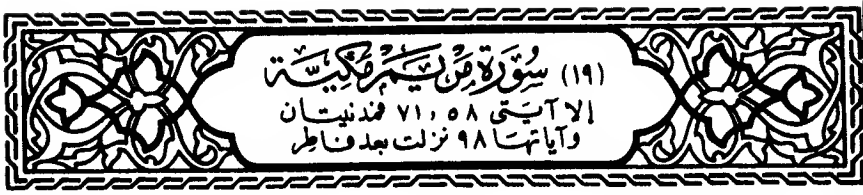 (١٩) سُورَةُ مَرْيَمَ مَكِّيَّة
إلا آيتى ٥٨ و ٧١ فمدنيتان
وآياتها ٩٨ نزلت بعد فاطر